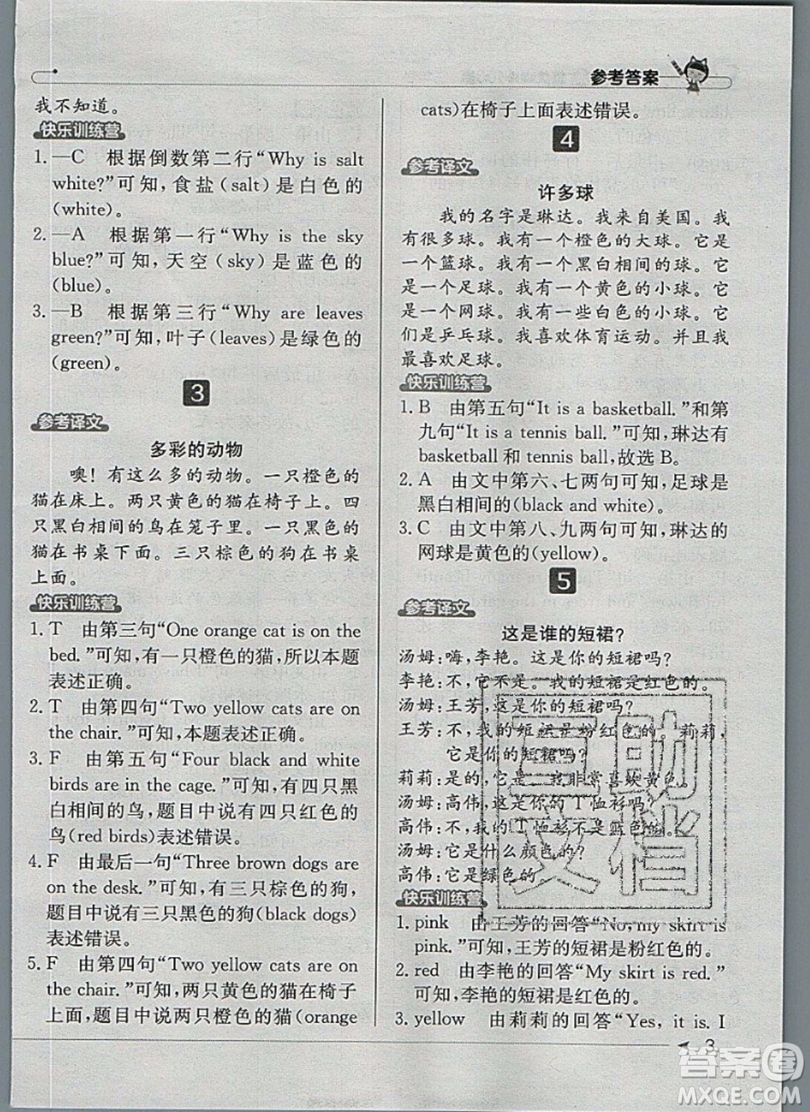 参考答案
我不知道。
快乐训练营
1. —C 根据倒数第二行“Why is salt
white?”可知，食盐(salt)是白色的
(white)。
2. —A 根据第一行“Why is the sky
blue?”可知，天空(sky)是蓝色的
(blue)。
3. —B 根据第三行“Why are leaves
green?”可知，叶子(leaves)是绿色的
(green)。
3
参考译文
多彩的动物
噢！有这么多的动物。一只橙色的
猫在床上。两只黄色的猫在椅子上。四
只黑白相间的鸟在笼子里。一只棕色的
猫在书桌下面。三只棕色的狗在书桌
上面。
快乐训练营
1. T 由第三句“One orange cat is on the
bed.”可知，有一只橙色的猫，所以本题
表述正确。
2. T 由第四句“Two yellow cats are on
the chair.”可知，本题表述正确。
3. F 由第五句“Four black and white
birds are in the cage.”可知，有四只黑
白相间的鸟，题目中说有四只红色的
鸟(red birds)表述错误。
4. F 由最后一句“Three brown dogs are
on the desk.”可知，有三只棕色的狗，
题目中说有三只黑色的狗(black dogs)
表述错误。
5. F 由第四句“Two yellow cats are on
the chair.”可知，两只黄色的猫在椅子
上面，题目中说两只橙色的猫(orange
cats)在椅子上面表述错误。
4
参考译文
许多球
我的名字是琳达。我来自美国。我
有很多球。我有一个橙色的大球。它
是一个篮球。我有一个黑白相间的球。它
是一个足球。我有一个黄色的小球。它
是一个网球。我有两个白色的小球。它
们是乒乓球。我喜欢体育运动，并且我
最喜欢足球。
快乐训练营
1. B 由第五句“It is a basketball.”和第
九句“It is a tennis ball.”可知，琳达有
basketball 和 tennis ball，故选 B。
2. A 由文中第六、七两句可知，足球是
黑白相间的(black and white)。
3. C 由文中第八、九两句可知，琳达的
网球是黄色的(yellow)。
5
参考译文
这是谁的短裙？
汤姆：嗨，李艳。这是你的短裙吗？
李艳：不，它不是。我的短裙是红色的。
汤姆：王芳，这是你的短裙吗？
王芳：不，我的短裙是粉红色的。莉莉，
它是你的短裙吗？
莉莉：是的，它是。我非常喜欢黄色。
汤姆：高伟，这是你的T恤衫吗？
高伟：不，我的T恤衫不是蓝色的。
汤姆：它是什么颜色的？
高伟：它是绿色的。
快乐训练营
1. pink 由王芳的回答“No, my skirt is
pink.”可知，王芳的短裙是粉红色的。
2. red 由李艳的回答“My skirt is red.”
可知，李艳的短裙是红色的。
3. yellow 由莉莉的回答“Yes, it is. I
3
三助文档
答案圈
MXQE.COM